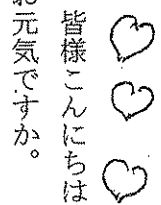 皆様こんにちは
お元気ですか。